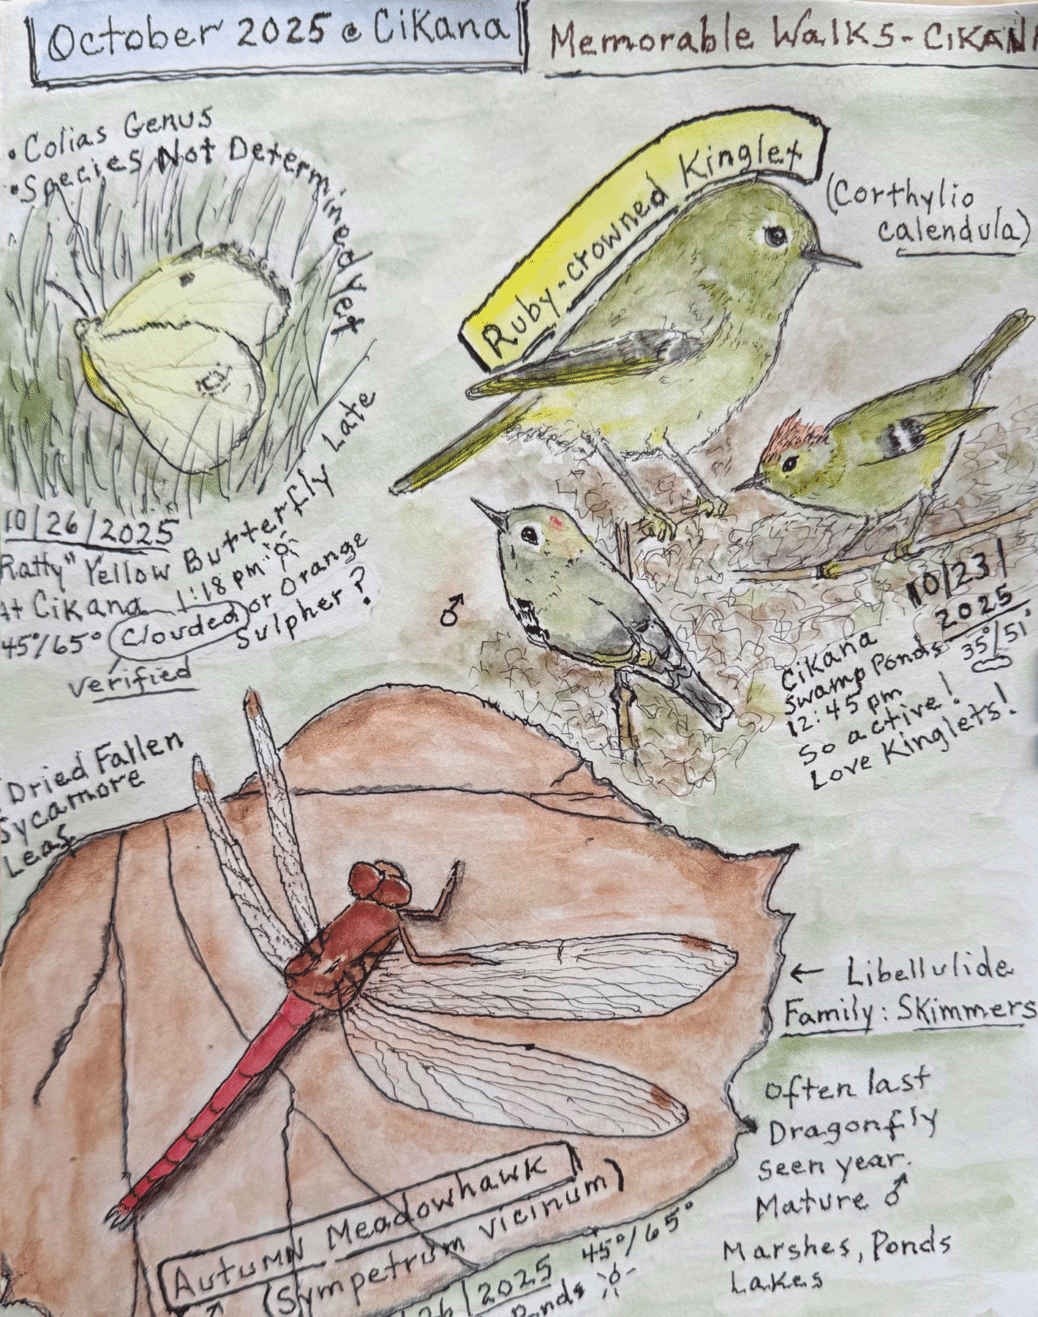 October 2025 @ Cikana
Memorable Walks - CIKANA
• Colias Genus
• Species Not Determined yet
10/26/2025
"Ratty" Yellow Butterfly Late
At Cikana 1:18 pm
45°/65° Clouded or Orange
Sulpher?
verified
Ruby-crowned Kinglet
(Corthylio
calendula)
♂
10/23/
2025
Cikana 35°/51°
Swamp Ponds
12:45 pm
So active!
Love Kinglets!
Dried Fallen
Sycamore
Leaf
← Libellulide
Family: Skimmers
Often last
Dragonfly
seen year.
Mature ♂
Marshes, Ponds
Lakes
Autumn Meadowhawk
(Sympetrum vicinum)
26/2025 45°/65°
Ponds